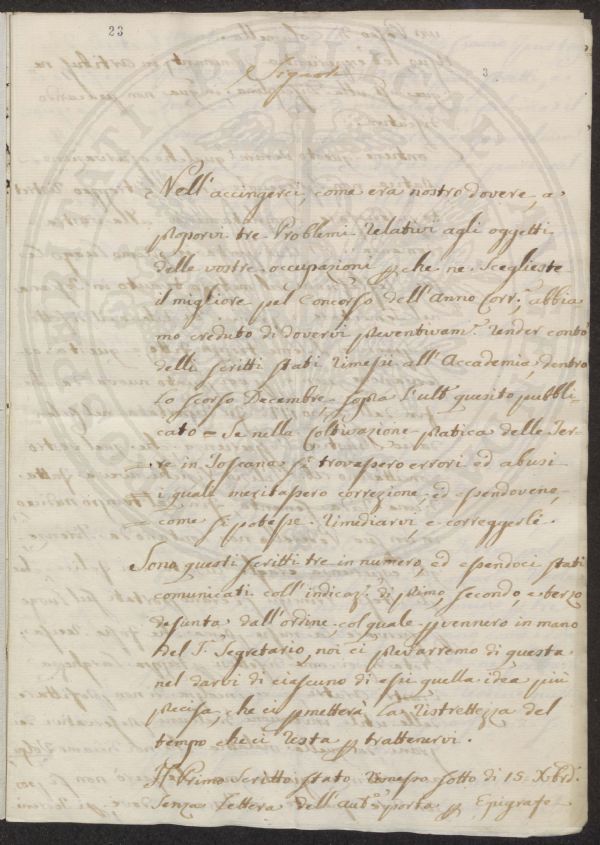 23
3
Signori
Nell'accingerci, come era nostro dovere, a
proporvi tre Problemi relativi agli oggetti
delle vostre occupazioni che ne sceglieste
il migliore pel Concorso dell'Anno Corr.e, abbia-
mo creduto di dovervi preventivam.e render conto
delli scritti stati rimessi all'Accademia dentro
lo scorso Decembre sopra l'ult.o quesito pubbli-
cato = Se nella Coltivazione pratica delle Ter-
= re in Toscana si trovassero errori ed abusi
= i quali meritassero correzione, ed essendoveno,
= come si potesse rimediarvi, e correggerli.
Sono questi scritti tre in numero, ed essendoci stati
comunicati coll'indicaz.e di primo, secondo, e terzo
desunta dall'ordine, col quale pervennero in mano
del S. Segretario, noi ci prevarremo di questa
nel darvi di ciascuno di essi quella idea più
precisa, che ci permetterà la ristrettezza del
tempo che ci resta per trattenervi.
Il Primo Scritto stato rimesso sotto di 15 Xbre
senza Lettera dell'aut.e porta per Epigrafe